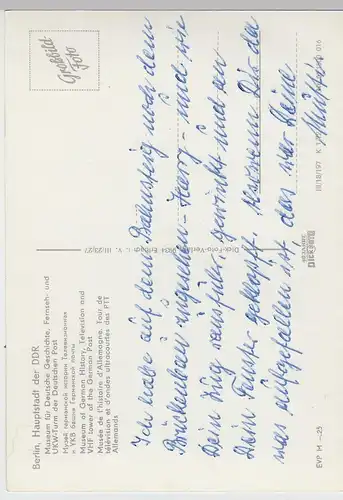 Berlin, Hauptstadt der DDR
Museum für Deutsche Geschichte, Fernseh- und
UKW-Turm der Deutschen Post
Музей германской истории Телевизионная
и УКВ башня Германской почты
Museum of German History, Television and
VHF tower of the German Post
Musée de l'histoire d'Allemagne. Tour de
télévision et d'ondes ultracourtes des PTT
Allemands
EVP M -,25
III/18/197
DICK
Großbild
Foto
Ich habe auf dem Bahnsteig noch dem
Brückenbau zugesehen - Harry - und wie
Dein Zug ausfuhr, gewinkt und an
Dein Fenster geklopft. Also wenn Dir da
was aufgefallen ist, das war Deine